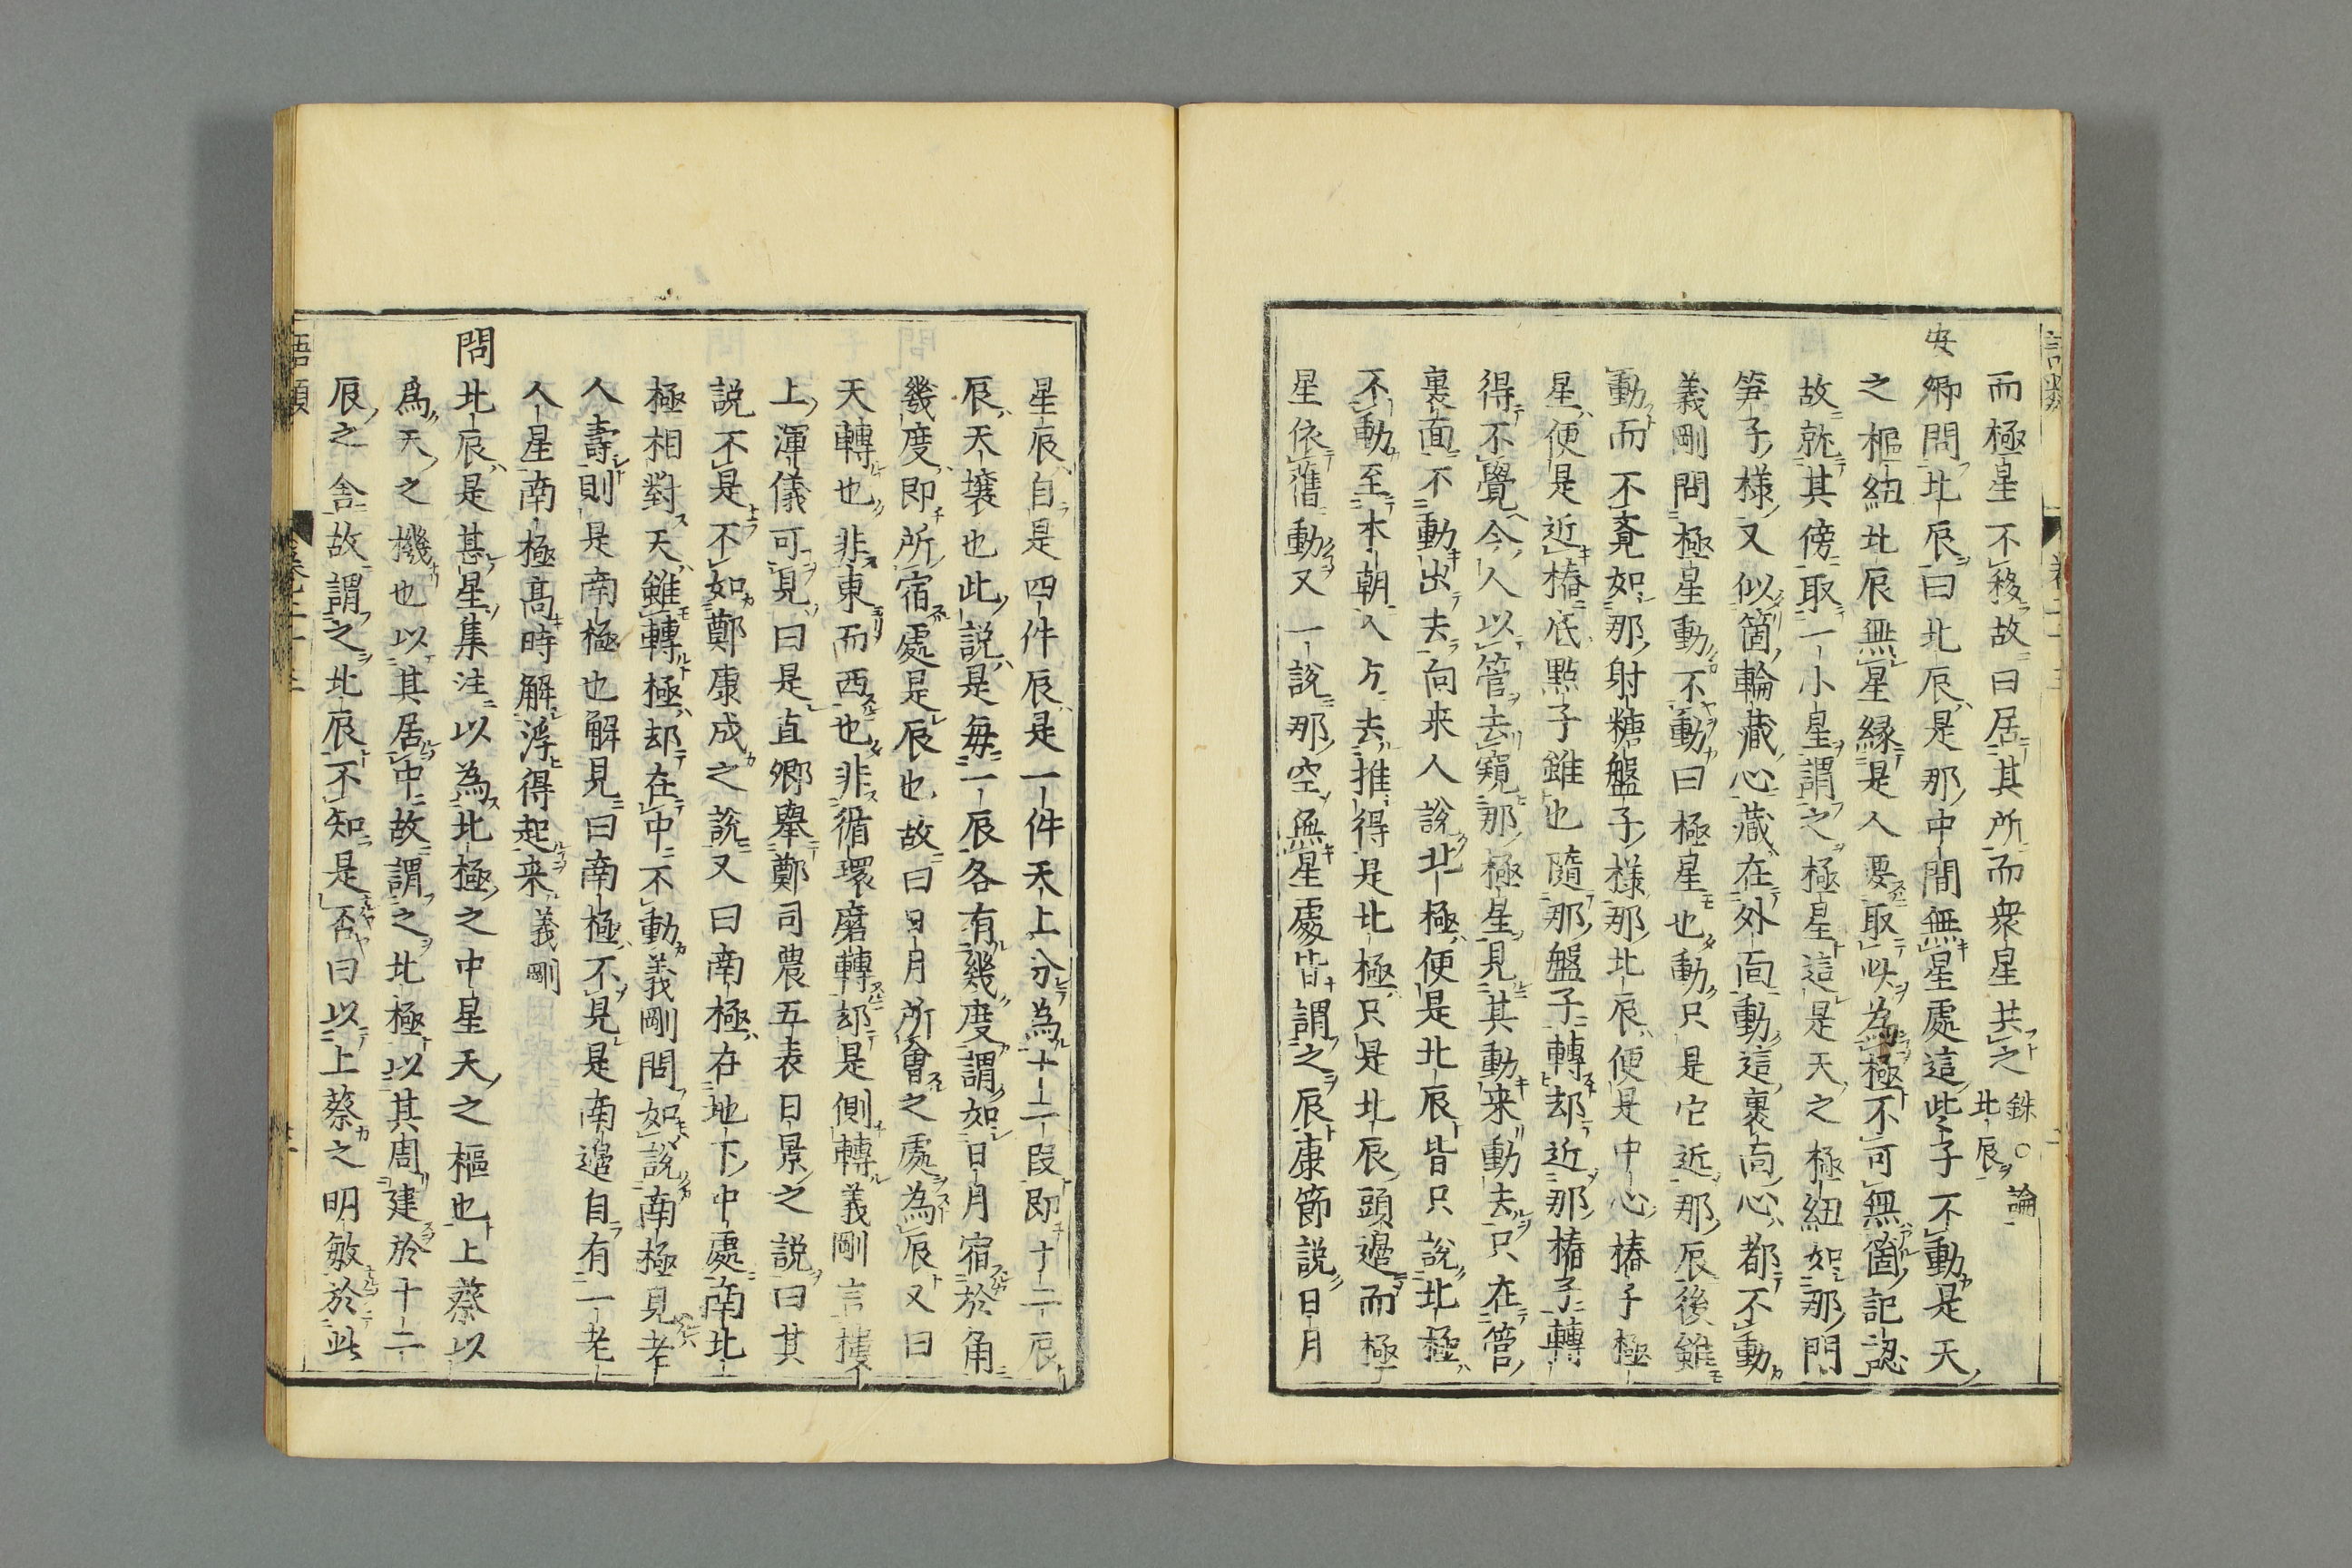 而極星不移故曰居其所而衆星共之 銖○論北辰
安卿問北辰曰北辰是那中間無星處這些子不動是天
之樞紐北辰無星縁是人要取以為極不可無箇記認
故就其傍取一小星謂之極星這是天之極紐如那門
笋子様又似箇輪藏心藏在外面動這裏面心都不動
義剛問極星動不動曰極星也動只是它近那辰後雖
動而不覺如那射糖盤子様那北辰便是中心樁子極
星便是近樁底點子雖也隨那盤子轉却近那樁子轉
得不覺今人以管去窺那極星見其動来動去只在管
裏面不動出去向来人說北極便是北辰皆只說北極
不動至本朝人方去推得是北極只是北辰頭邉而極
星依舊動又一說那空無星處皆謂之辰康節説日月
星辰自是四件辰是一件天上分為十二段即十二辰
辰天壤也此說是毎一辰各有幾度謂如日月宿於角
幾度即所宿處是辰也故曰日月所會之處為辰又曰
天轉也非東而西也非循環磨轉却是側轉義剛言樓
上渾儀可見曰是直卿舉鄭司農五表日景之説曰其
説不是不如鄭康成之說又曰南極在地下中處南北
極相對天雖轉極却在中不動義剛問如說南極見老
人壽則是南極也解見曰南極不見是南邉自有一老
人星南極高時解浮得起来義剛
問北辰是甚星集注以為北極之中星天之樞也上蔡以
爲天之機也以其居中故謂之北極以其周建於十二
辰之舍故謂之北辰不知是否曰以上蔡之明敏於此
語類